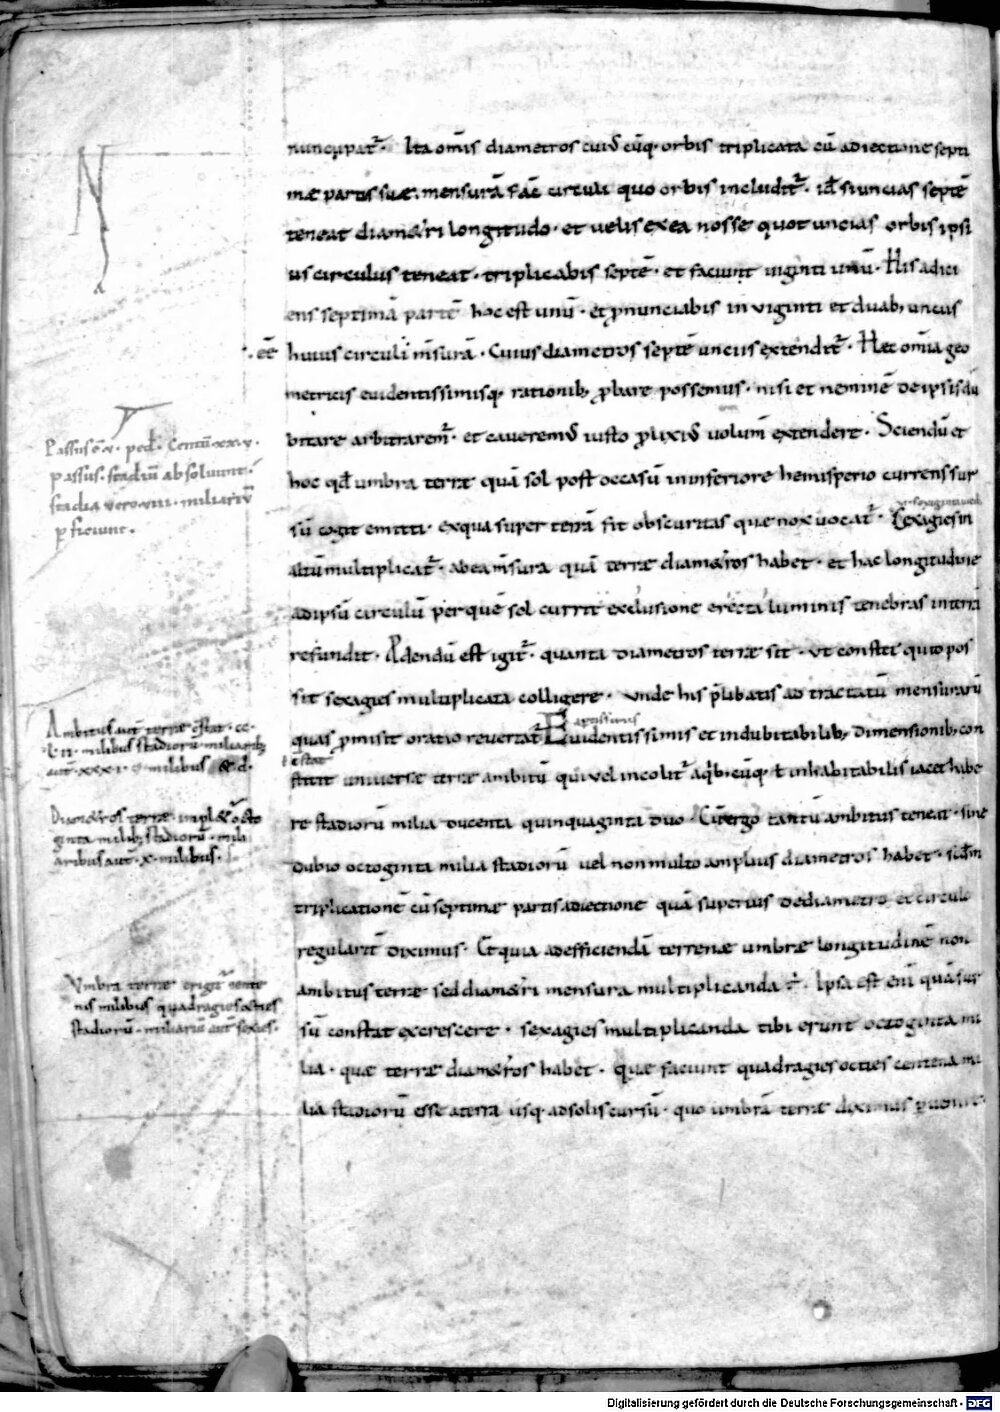 nuncupat᷑. Ita om̄is diametros cuiꝰ cūq; orbis triplicata cū adiectione septi
mæ partis suæ. mensurā fac̄ circuli quo orbis includit᷑. id ē si uncias septē
teneat diam&ri longitudo. et uelis ex ea nosse quot uncias orbis ipsi
us circulus teneat. triplicabis septē. et faciunt uiginti unū. His adici
ens septimā partē hoc est unū. et ꝓnunciabis in viginti et duab; uncus
.ēē
huius circuli m̄surā. Cuius diametros septē unciis extendit᷑. Hec om̄ia geo
metricis euidentissimisq; rationib; ꝓbare possemus. nisi et neminē de ipsis du
bitare arbitrarem᷑. et caueremꝰ iusto ꝓlixiꝰ uolum̄ extendere. Sciendū et
hoc qđ umbra terræ quā sol post occasū in inferiore hemisperio currens sur
sū cogit emitti. ex qua super terrā fit obscuritas quæ nox uocat᷑. Sexagies in
altū multiplicat᷑. ab ea m̄sura quā terræ diam&ros habet. et hac longitudine
ad ipsū circulū per quē sol currit exclusione erecta luminis tenebras in terra
refundit. Adendū est igit᷑. quanta diametros terræ sit. ut constet quid pos
sit sexagies multiplicata colligere. unde his p̄libatis ad tractatū mensurarū
aptissimis
quas ꝓmisit oratio reuertat᷑ Euidentissimis et indubitabilib; dimensionib; con
stitit uniuersæ terræ ambitū qui uel incolit᷑ a qb; cūq; ł inhabitabilis iacet habe
re stadiorū milia ducenta quinquaginta duo. Cū ergo tantū ambitus teneat. sine
dubio octoginta milia stadiorū uel non multo amplius diametros habet. scd̄m
triplicationē cū septimæ partis adiectione quā superius de diametro et circulo
regularit̄ diximus. Et quia ad efficiendā terrenæ umbræ longitudinē non
ambitus terræ sed diam&ri mensura multiplicanda ē. Ipsa est eni quā sur
sū constat excrescere. sexagies multiplicanda tibi erunt octoginta mi
lia. quæ terræ diam&ros habet. Quæ faciunt quadragies octies centena mi
lia stadiorū esse a terra usq; ad solis cursū. quo umbrā terræ diximus ꝑuenire.
Passus ē .v. ped̄. Centū .xx.v.
passus. stadiū absoluunt.
stadia vero .viii. miliariū
ꝑficiunt.
Ambitus aut̄ terræ ēstat .cc.
l.ii. milibus stadiorū. miliarib;
aut̄ .xxx.i. milibus & d.
Diam&ros terræ impl& octo
ginta milib; stadiorū. mili
aribus aut̄ .x. milibus.
Vmbra terræ erigit᷑ cente
nis milibus quadragies octies
stadiorū. miliariū aut̄ sexies.